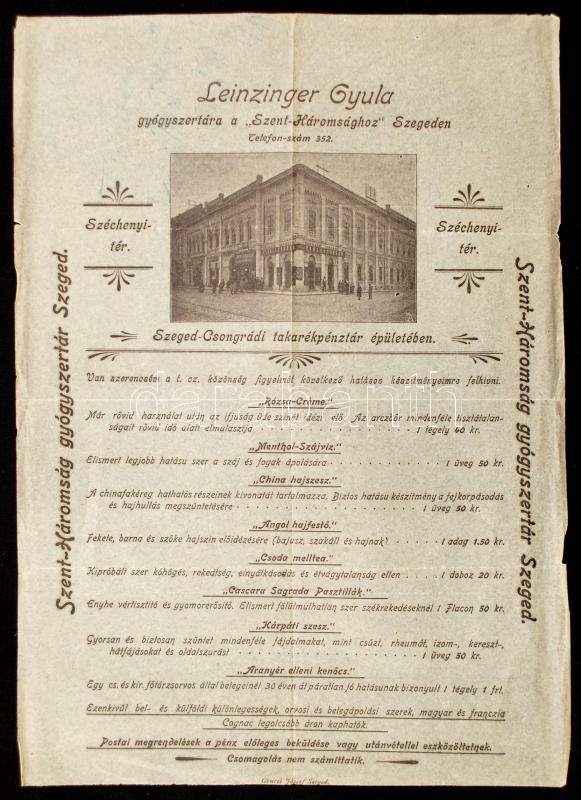 Leinzinger Gyula
gyógyszertára a „Szent-Háromsághoz" Szegeden
Telefon-szám 352.
Széchenyi-
tér.
Széchenyi-
tér.
Szent-Háromság gyógyszertár Szeged.
Szent-Háromság gyógyszertár Szeged.
Szeged-Csongrádi takarékpénztár épületében.
Van szerencsém a t. cz. közönség figyelmét következő hatásos készítményeimre felhívni.
„Rózsa-Créme."
Már rövid használat után az ifjúság üde színét idézi elő. Az arczbőr mindenféle tisztátalan-
ságait rövid idő alatt elmulasztja 1 tégely 40 kr.
„Menthol-Szájvíz."
Elismert legjobb hatású szer a száj és fogak ápolására 1 üveg 50 kr.
„China hajszesz."
A chinafakéreg hathatós részeinek kivonatát tartalmazza. Biztos hatású készítmény a fejkorpásodás
és hajhullás megszüntetésére 1 üveg 50 kr.
„Angol hajfestő."
Fekete, barna és szőke hajszín előidézésére (bajusz, szakáll és hajnak) 1 adag 1.50 kr.
„Csoda melltea."
Kipróbált szer köhögés, rekedtség, elnyálkásodás és étvágytalanság ellen 1 doboz 20 kr.
„Cascara Sagrada Pasztillák."
Enyhe vértisztító és gyomorerősítő. Elismert fölülmulhatlan szer székrekedéseknél 1 Flacon 50 kr.
„Kárpáti szesz."
Gyorsan és biztosan szüntet mindenféle fájdalmakat, mint csúzt, rheumát, izom-, kereszt-,
hátfájásokat és oldalszurást 1 üveg 50 kr.
„Aranyér elleni kenőcs."
Egy cs. és kir. főtörzsorvos által betegeinél 30 éven át páratlan jó hatásunak bizonyult 1 tégely 1 frt.
Ezenkívül bel- és külföldi különlegességek, orvosi és betegápolási szerek, magyar és franczia
Cognac legolcsóbb áron kaphatók.
Postai megrendelések a pénz előleges beküldése vagy utánvétellel eszközöltetnek.
Csomagolás nem számíttatik.
Szeged.
darabanth